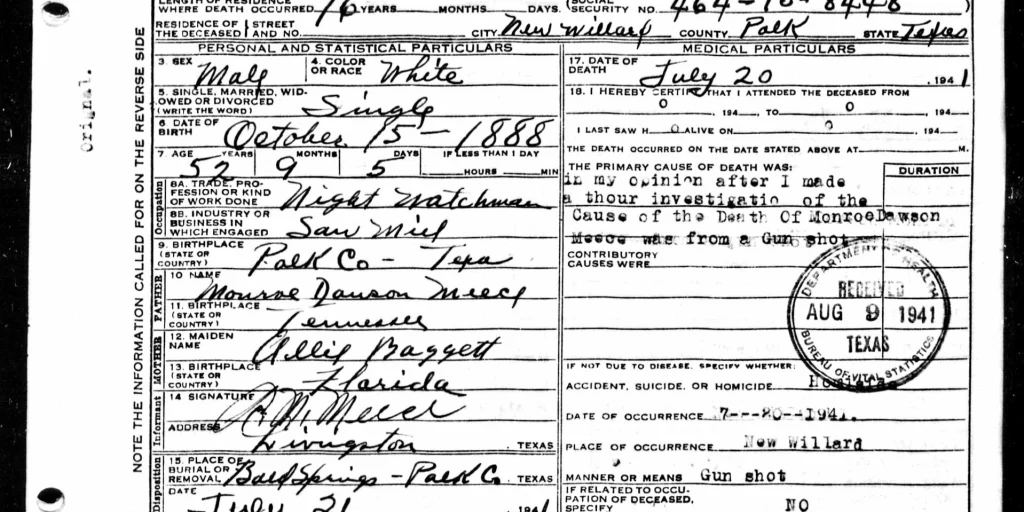 Orignal.
NOTE THE INFORMATION CALLED FOR ON THE REVERSE SIDE
LENGTH OF RESIDENCE
WHERE DEATH OCCURRED 76 YEARS MONTHS DAYS. (SOCIAL SECURITY NO. 464-10-8448)
RESIDENCE OF THE DECEASED STREET AND NO. CITY New Willard COUNTY Polk STATE Texas
PERSONAL AND STATISTICAL PARTICULARS
3. SEX Male 4. COLOR OR RACE White
5. SINGLE, MARRIED, WIDOWED OR DIVORCED (WRITE THE WORD) Single
6 DATE OF BIRTH October 15 - 1888
7 AGE YEARS MONTHS DAYS IF LESS THAN 1 DAY
52 9 5 HOURS MIN
Occupation
8A. TRADE, PROFESSION OR KIND OF WORK DONE Night Watchman
8B. INDUSTRY OR BUSINESS IN WHICH ENGAGED Saw Mill
9. BIRTHPLACE (STATE OR COUNTRY) Polk Co - Texa
FATHER
10 NAME Monroe Dawson Meece
11. BIRTHPLACE (STATE OR COUNTRY) Tennessee
MOTHER
12. MAIDEN NAME Allie Baggett
13. BIRTHPLACE (STATE OR COUNTRY) Florida
Informant
14 SIGNATURE Meece
ADDRESS Livingston TEXAS
Disposition
15. PLACE OF BURIAL OR REMOVAL Bald Springs - Polk Co TEXAS
DATE July 21 1941
MEDICAL PARTICULARS
17. DATE OF DEATH July 20 , 1941
18. I HEREBY CERTIFY THAT I ATTENDED THE DECEASED FROM
0 , 194 , TO 0 , 194
I LAST SAW H 0 ALIVE ON 0 , 194
THE DEATH OCCURRED ON THE DATE STATED ABOVE AT M.
THE PRIMARY CAUSE OF DEATH WAS: DURATION
in my opinion after I made
a thour investigatio of the
Cause of the Death Of MonroeDawson
Meece was from a Gun shot
CONTRIBUTORY CAUSES WERE
DEPARTMENT OF HEALTH
RECEIVED
AUG 9 1941
TEXAS
BUREAU OF VITAL STATISTICS
IF NOT DUE TO DISEASE, SPECIFY WHETHER:
ACCIDENT, SUICIDE, OR HOMICIDE
DATE OF OCCURRENCE 7---20--1941.
PLACE OF OCCURRENCE New Willard
MANNER OR MEANS Gun shot
IF RELATED TO OCCUPATION OF DECEASED, SPECIFY NO